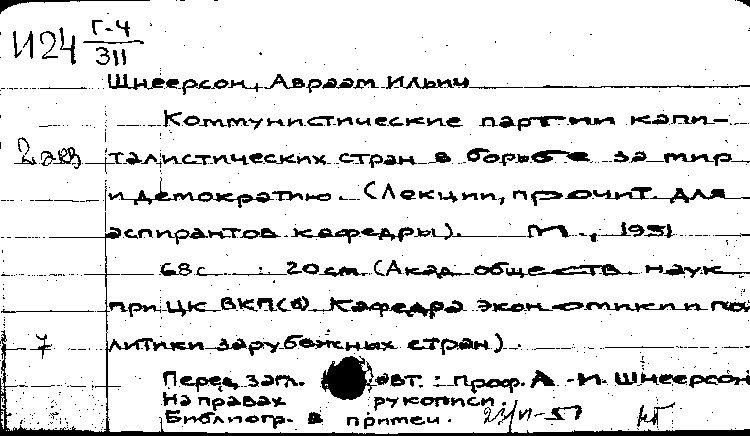 И24 Г-4/311
Шнеерсон, Авраам Ильич
Коммунистические партии капи-
2 экз талистических стран в борьбе за мир
и демократию. (Лекции, прочит. для
аспирантов кафедры). М., 1951
68 с. : 20 см. (Акад. обществ. наук
при ЦК ВКП(б). Кафедра экономики и по-
7 литики зарубежных стран).
Перед загл. авт.: проф. А.-И. Шнеерсон
На правах рукописи.
Библиогр. в примеч.